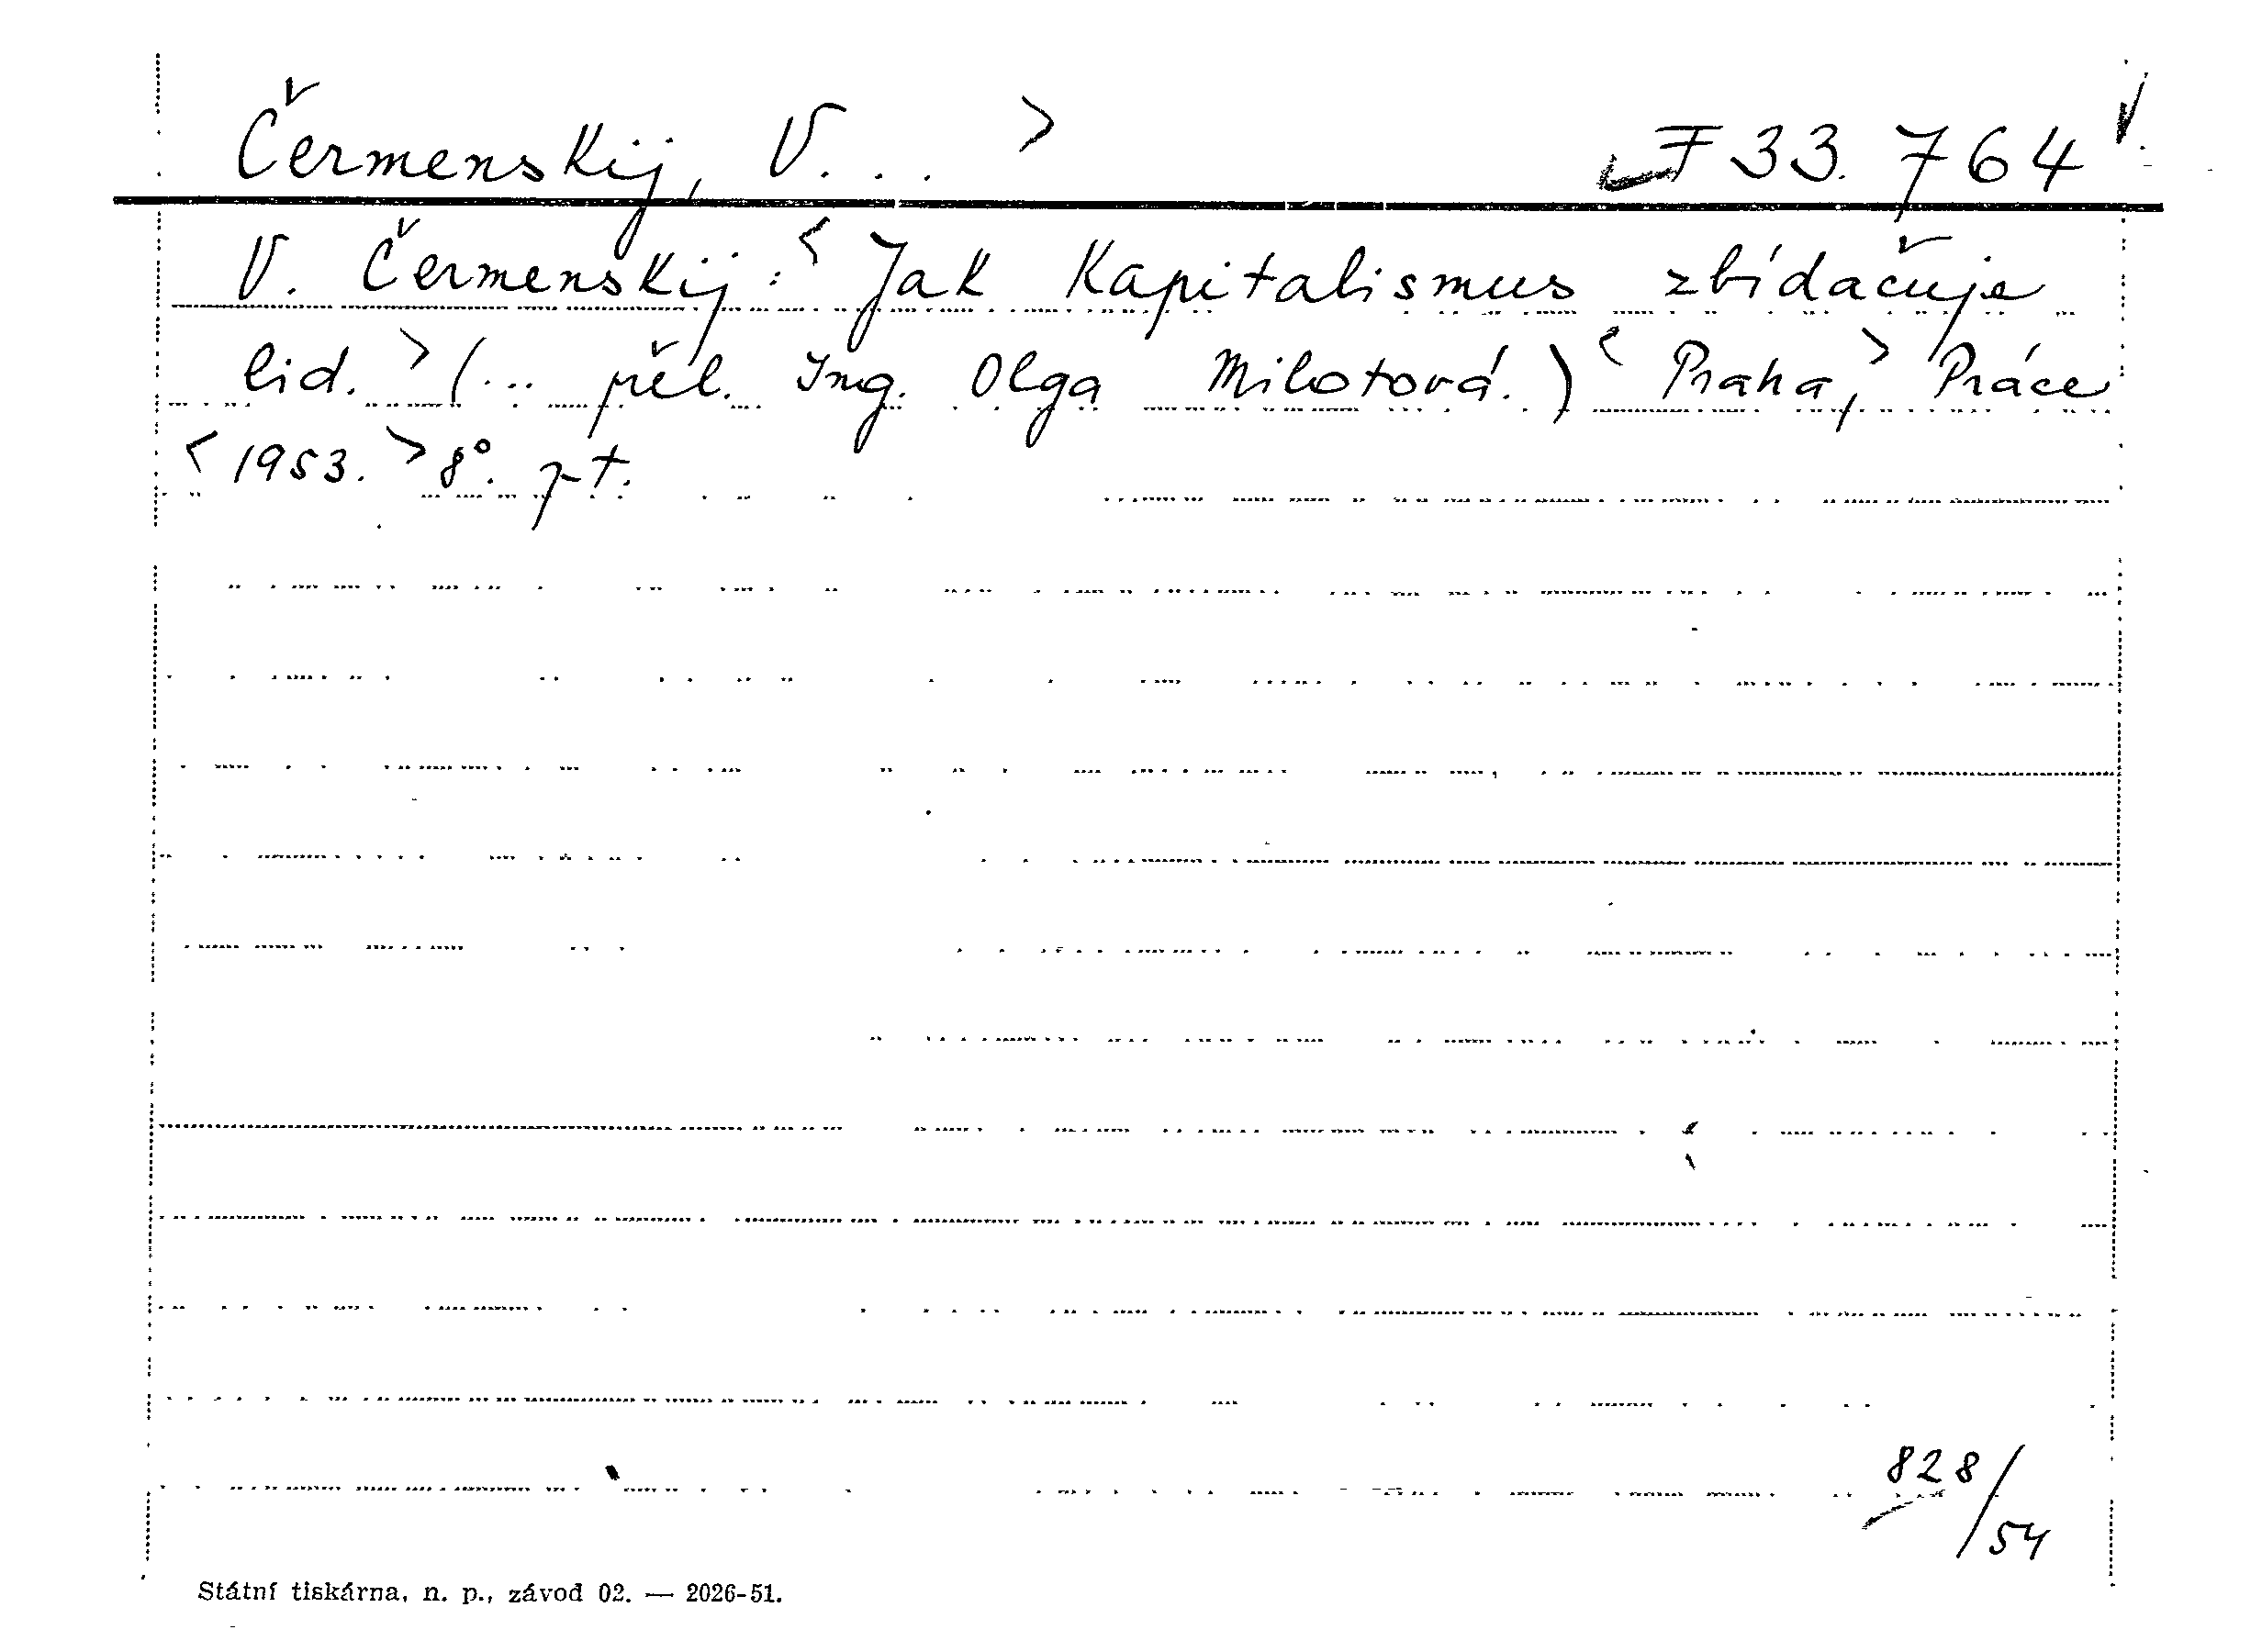 Čermenskij, V... > F 33.764
V. Čermenskij: < Jak kapitalismus zbídačuje
lid. > (... přel. Ing. Olga Milotová.) < Praha, > Práce
< 1953. > 8°. pt.
828/54
Státní tiskárna, n. p., závod 02. — 2026-51.